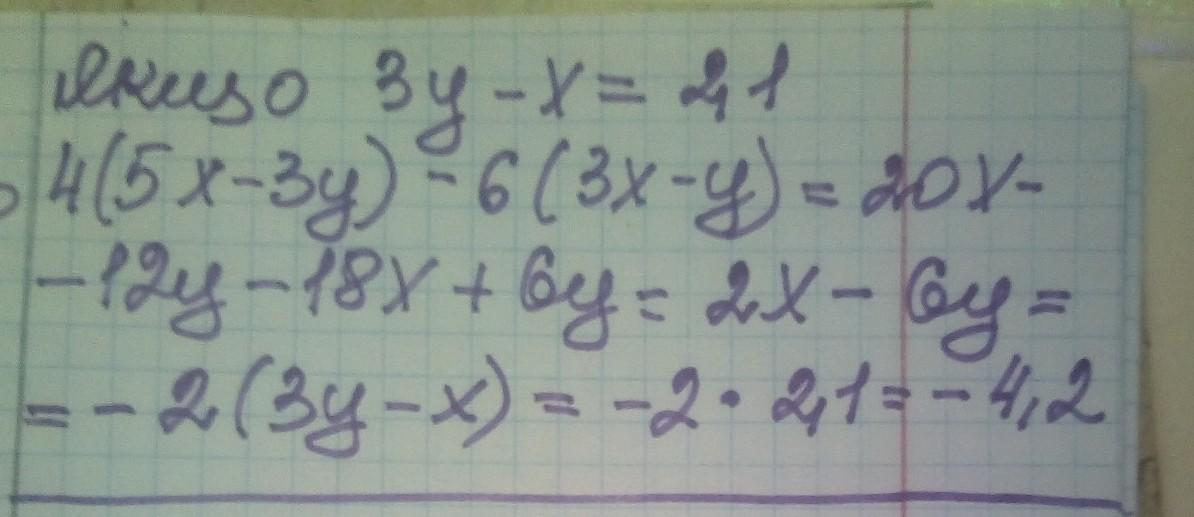 якщо 3y - x = 2,1
4(5x - 3y) - 6(3x - y) = 20x -
- 12y - 18x + 6y = 2x - 6y =
= - 2(3y - x) = -2 · 2,1 = - 4,2